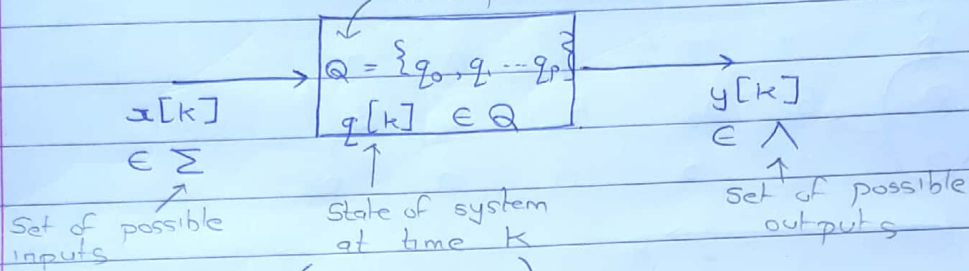 Q = {q₀, q₁ --- qₚ}
x[k]
q[k] ∈ Q
y[k]
∈ Σ
∈ Λ
Set of possible
inputs
State of system
at time K
Set of possible
outputs